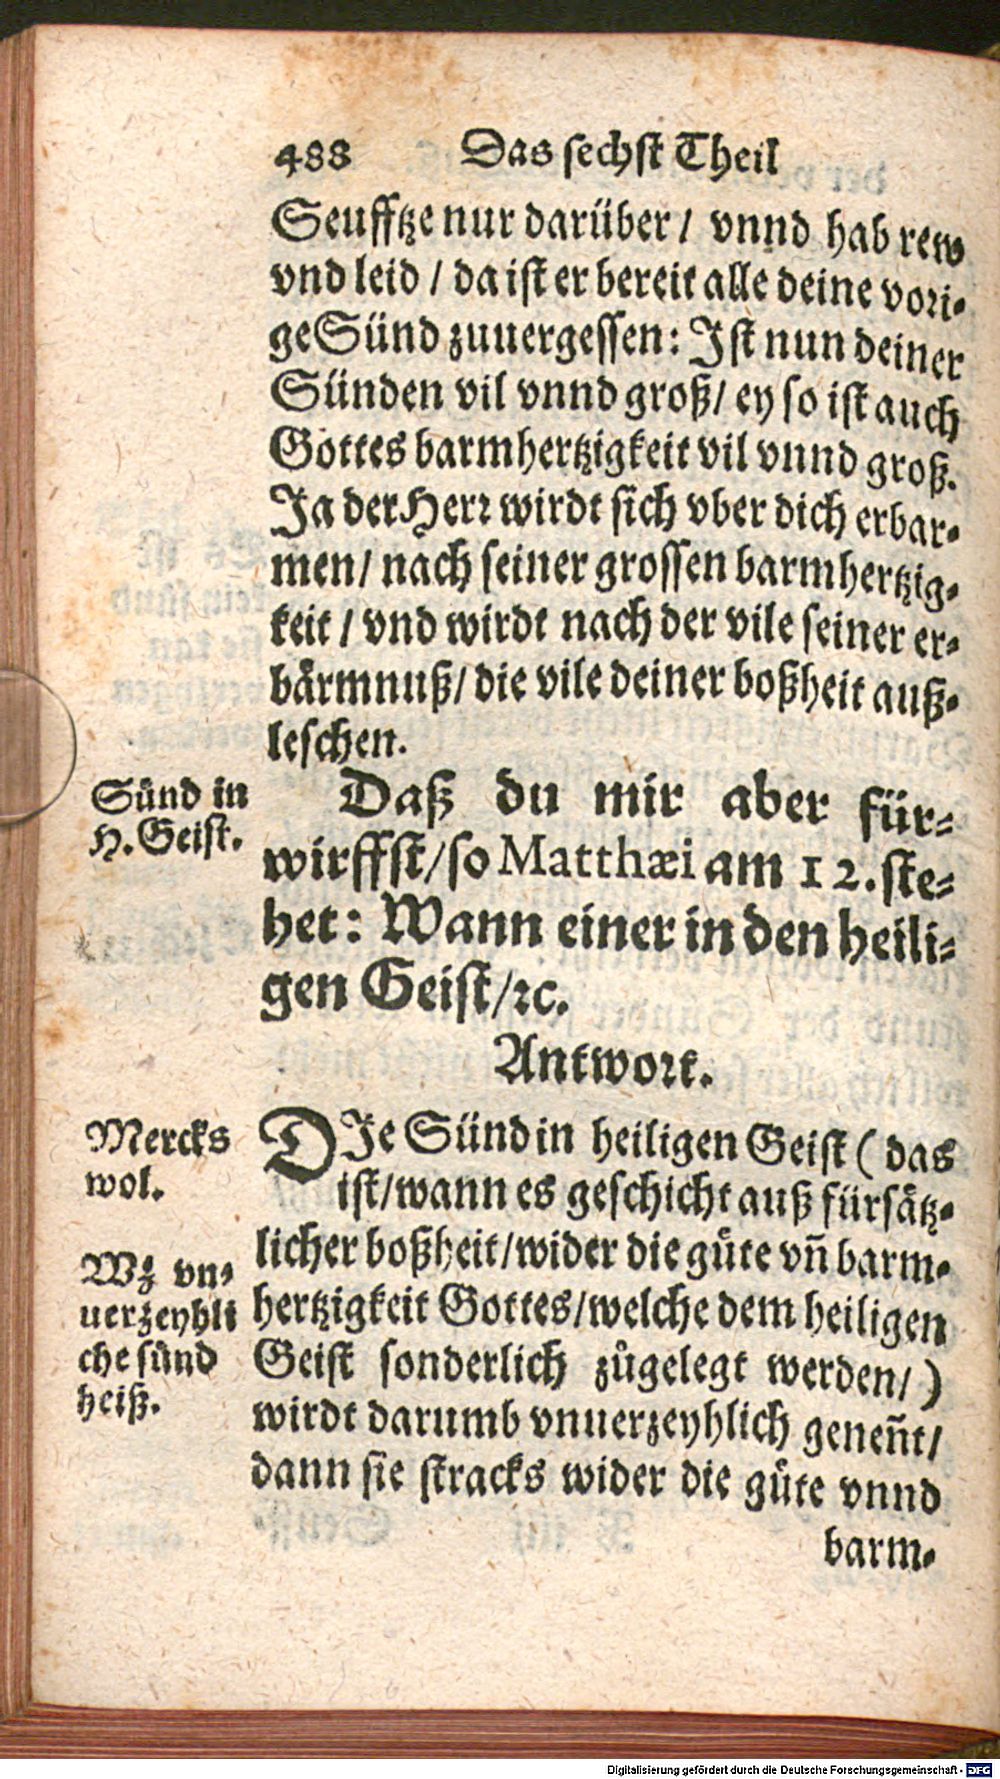 488 Das sechst Theil
Seufftze nur darüber / vnnd hab rew
vnd leid / da ist er bereit alle deine vori-
ge Sünd zuuergessen: Ist nun deiner
Sünden vil vnnd groß / ey so ist auch
Gottes barmhertzigkeit vil vnnd groß.
Ja der Herr wirdt sich vber dich erbar-
men / nach seiner grossen barmhertzig-
keit / vnd wirdt nach der vile seiner er-
bärmnuß / die vile deiner boßheit auß-
leschen.
Sünd in
H. Geist.
Daß du mir aber für-
wirffst / so Matthæi am 12. ste-
het: Wann einer in den heili-
gen Geist / ꝛc.
Antwort.
Mercks
wol.
DIe Sünd in heiligen Geist ( das
ist / wann es geschicht auß fürsätz-
Wz vn-
uerzeyhli
che sünd
heiß.
licher boßheit / wider die güte vn̄ barm-
hertzigkeit Gottes / welche dem heiligen
Geist sonderlich zůgelegt werden / )
wirdt darumb vnuerzeyhlich genen̄t /
dann sie stracks wider die güte vnnd
barm-
Digitalisierung gefördert durch die Deutsche Forschungsgemeinschaft - DFG